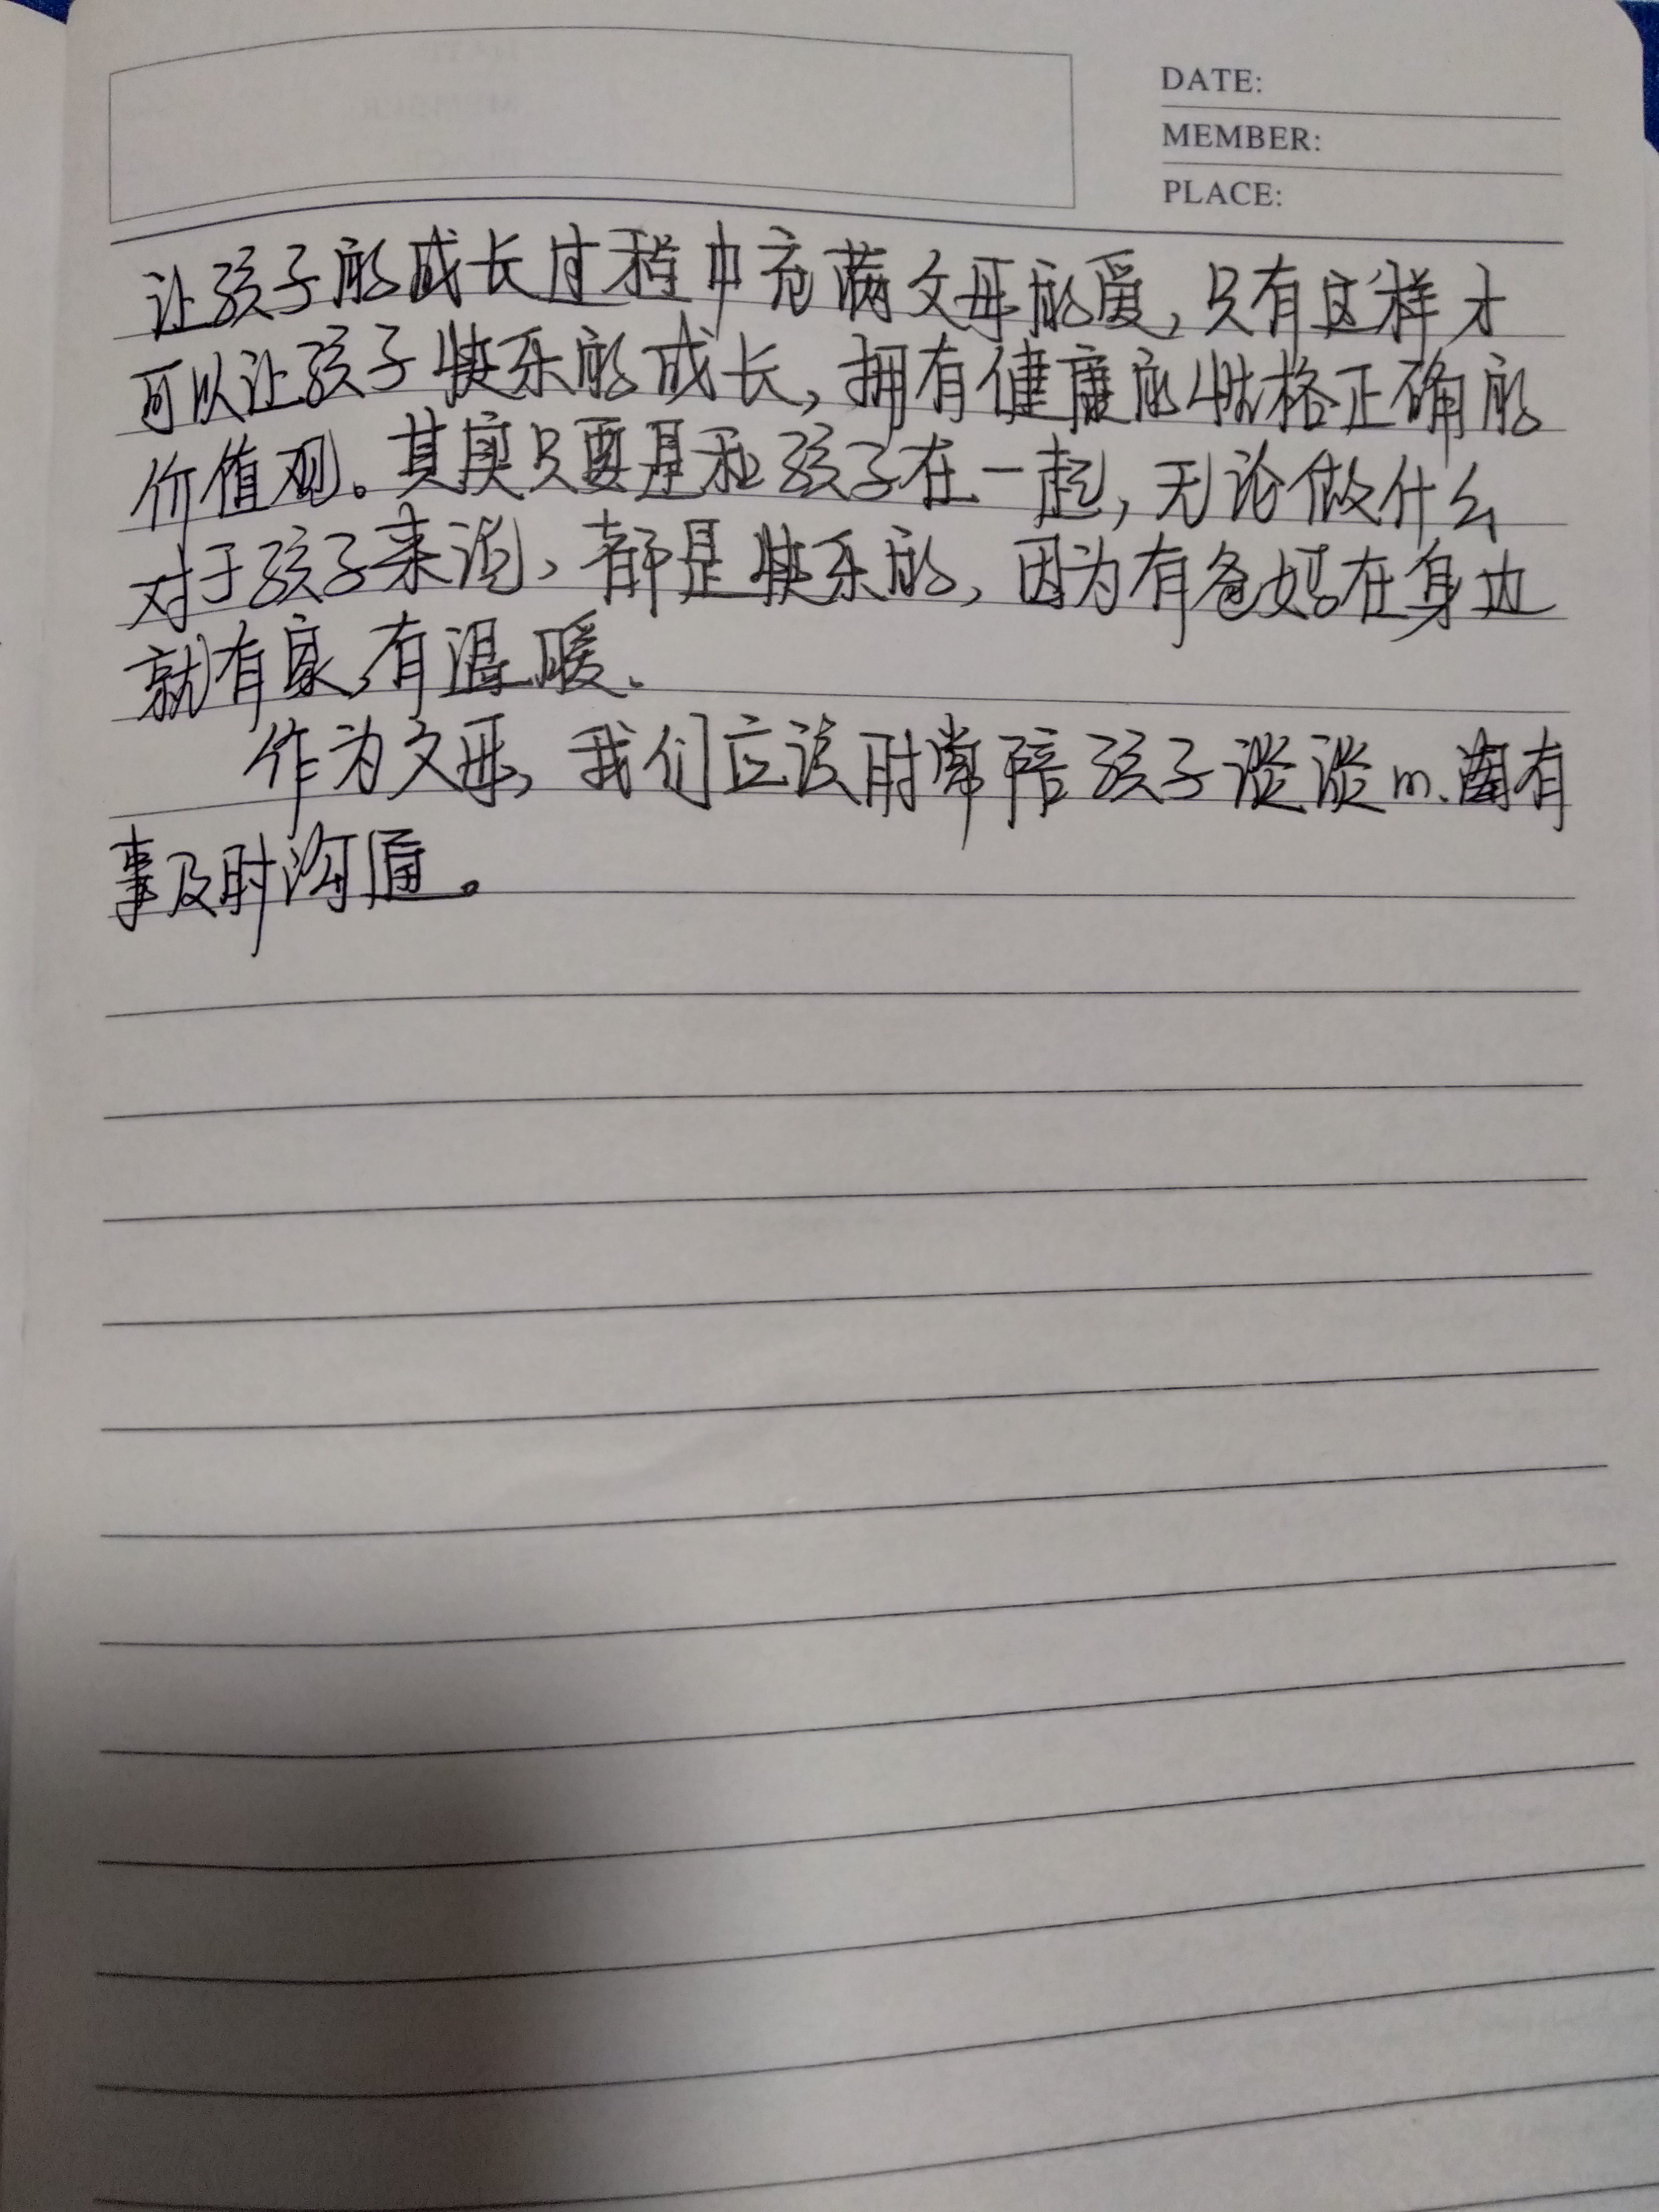 DATE:
MEMBER:
PLACE:
让孩子的成长过程中充满父母的爱,只有这样才
可以让孩子快乐的成长,拥有健康的性格正确的
价值观。其实只要是和孩子在一起,无论做什么
对于孩子来说、都是快乐的,因为有爸妈在身边
就有家,有温暖、
作为父母,我们应该时常陪孩子谈谈心、有
事及时沟通。